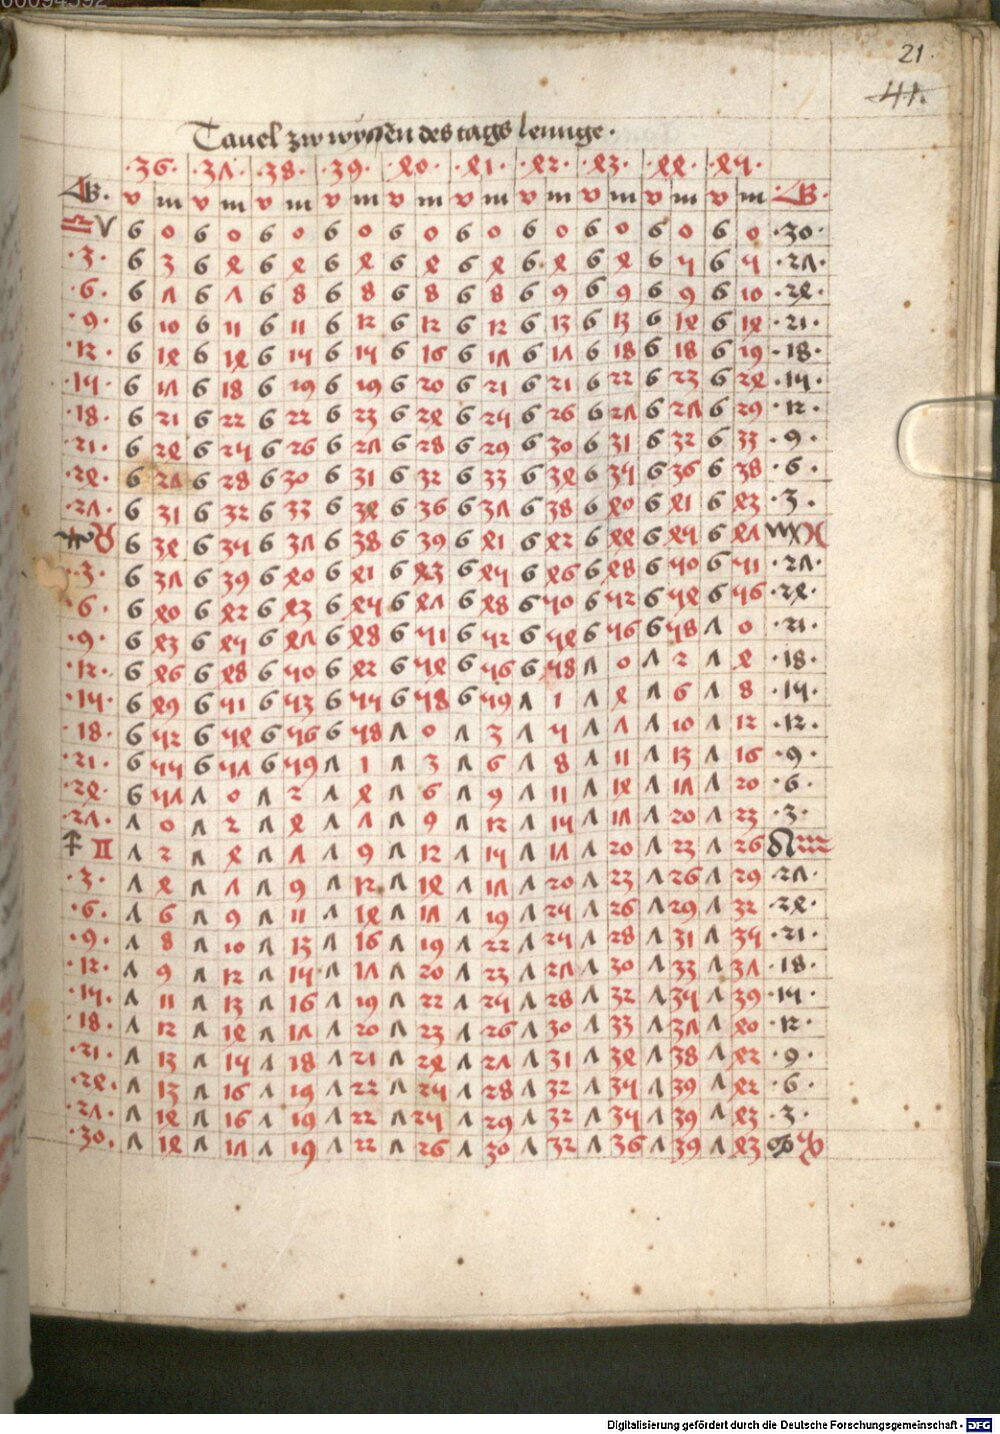 21.
41.
Tauel zw wyssen des tags lennge .
.36. .37. .38. .39. .40. .41. .42. .43. .44. .45.
v m v m v m v m v m v m v m v m v m v m
♎♈ 6 0 6 0 6 0 6 0 6 0 6 0 6 0 6 0 6 0 6 0 .30.
.3. 6 3 6 4 6 4 6 4 6 4 6 4 6 4 6 4 6 5 6 5 .27.
.6. 6 7 6 7 6 8 6 8 6 8 6 8 6 9 6 9 6 9 6 10 .24.
.9. 6 10 6 11 6 11 6 12 6 12 6 12 6 13 6 13 6 14 6 14 .21.
.12. 6 14 6 14 6 15 6 15 6 16 6 17 6 17 6 18 6 18 6 19 .18.
.15. 6 17 6 18 6 19 6 19 6 20 6 21 6 21 6 22 6 23 6 24 .15.
.18. 6 21 6 22 6 22 6 23 6 24 6 25 6 26 6 27 6 27 6 29 .12.
.21. 6 24 6 25 6 26 6 27 6 28 6 29 6 30 6 31 6 32 6 33 .9.
.24. 6 27 6 28 6 30 6 31 6 32 6 33 6 34 6 35 6 36 6 38 .6.
.27. 6 31 6 32 6 33 6 34 6 36 6 37 6 38 6 40 6 41 6 43 .3.
♏♉ 6 34 6 35 6 37 6 38 6 39 6 41 6 42 6 44 6 45 6 47 ♍♓
.3. 6 37 6 39 6 40 6 41 6 43 6 45 6 46 6 48 6 50 6 51 .27.
.6. 6 40 6 42 6 43 6 45 6 47 6 48 6 50 6 52 6 54 6 56 .24.
.9. 6 43 6 45 6 47 6 48 6 51 6 52 6 54 6 56 6 58 7 0 .21.
.12. 6 46 6 48 6 50 6 42 6 54 6 56 6 58 7 0 7 2 7 4 .18.
.15. 6 49 6 51 6 53 6 55 6 58 6 59 7 1 7 4 7 6 7 8 .15.
.18. 6 52 6 54 6 56 6 58 7 0 7 3 7 5 7 7 7 10 7 12 .12.
.21. 6 55 6 57 6 59 7 1 7 3 7 6 7 8 7 11 7 13 7 16 .9.
.24. 6 57 7 0 7 2 7 4 7 6 7 9 7 11 7 14 7 17 7 20 .6.
.27. 7 0 7 2 7 4 7 7 7 9 7 12 7 15 7 17 7 20 7 23 .3.
♐♊ 7 2 7 4 7 7 7 9 7 12 7 15 7 17 7 20 7 23 7 26 ♌♒
.3. 7 4 7 7 7 9 7 12 7 14 7 17 7 20 7 23 7 26 7 29 .27.
.6. 7 6 7 9 7 11 7 14 7 17 7 19 7 25 7 26 7 29 7 32 .24.
.9. 7 8 7 10 7 13 7 16 7 19 7 22 7 25 7 28 7 31 7 35 .21.
.12. 7 9 7 12 7 15 7 17 7 20 7 23 7 27 7 30 7 33 7 37 .18.
.15. 7 11 7 13 7 16 7 19 7 22 7 25 7 28 7 32 7 35 7 39 .15.
.18. 7 12 7 14 7 17 7 20 7 23 7 26 7 30 7 33 7 37 7 40 .12.
.21. 7 13 7 15 7 18 7 21 7 24 7 27 7 31 7 34 7 38 7 42 .9.
.24. 7 13 7 16 7 19 7 22 7 25 7 28 7 32 7 35 7 39 7 42 .6.
.27. 7 14 7 16 7 19 7 22 7 25 7 29 7 32 7 35 7 39 7 43 .3.
.30. 7 14 7 17 7 19 7 22 7 26 7 30 7 32 7 36 7 39 7 43 ♋♑
Digitalisierung gefördert durch die Deutsche Forschungsgemeinschaft - DFG